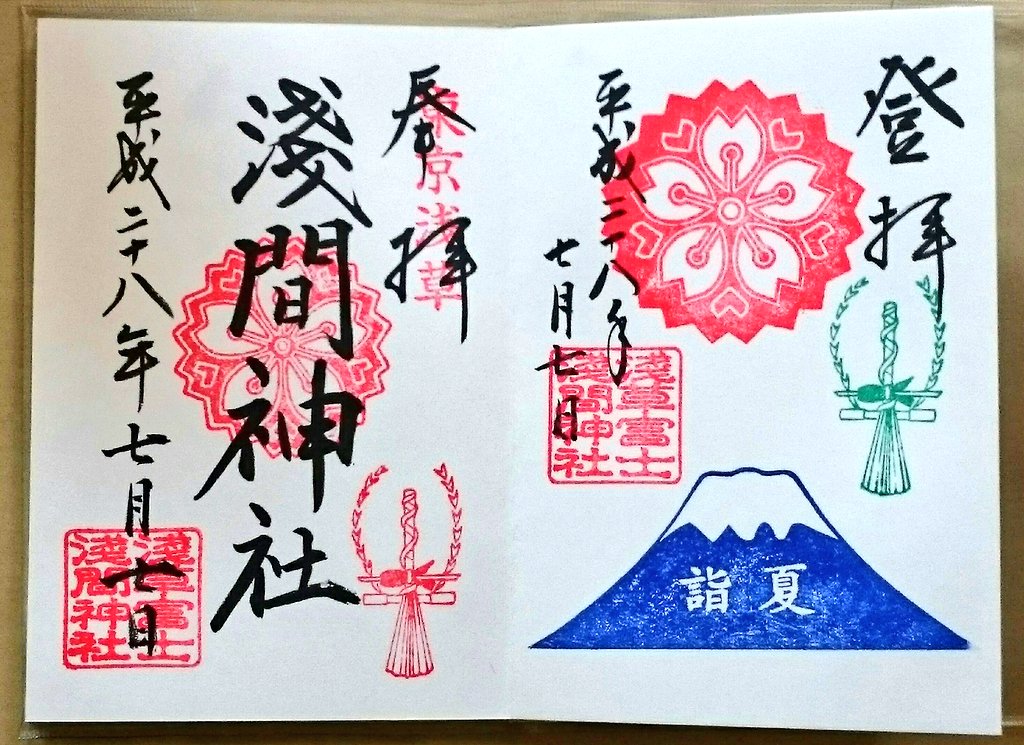 登拝
平成二十八年
七月七日
淺草富士
淺間神社
夏詣
奉拝
東京浅草
淺間神社
平成二十八年七月七日
淺草富士
淺間神社